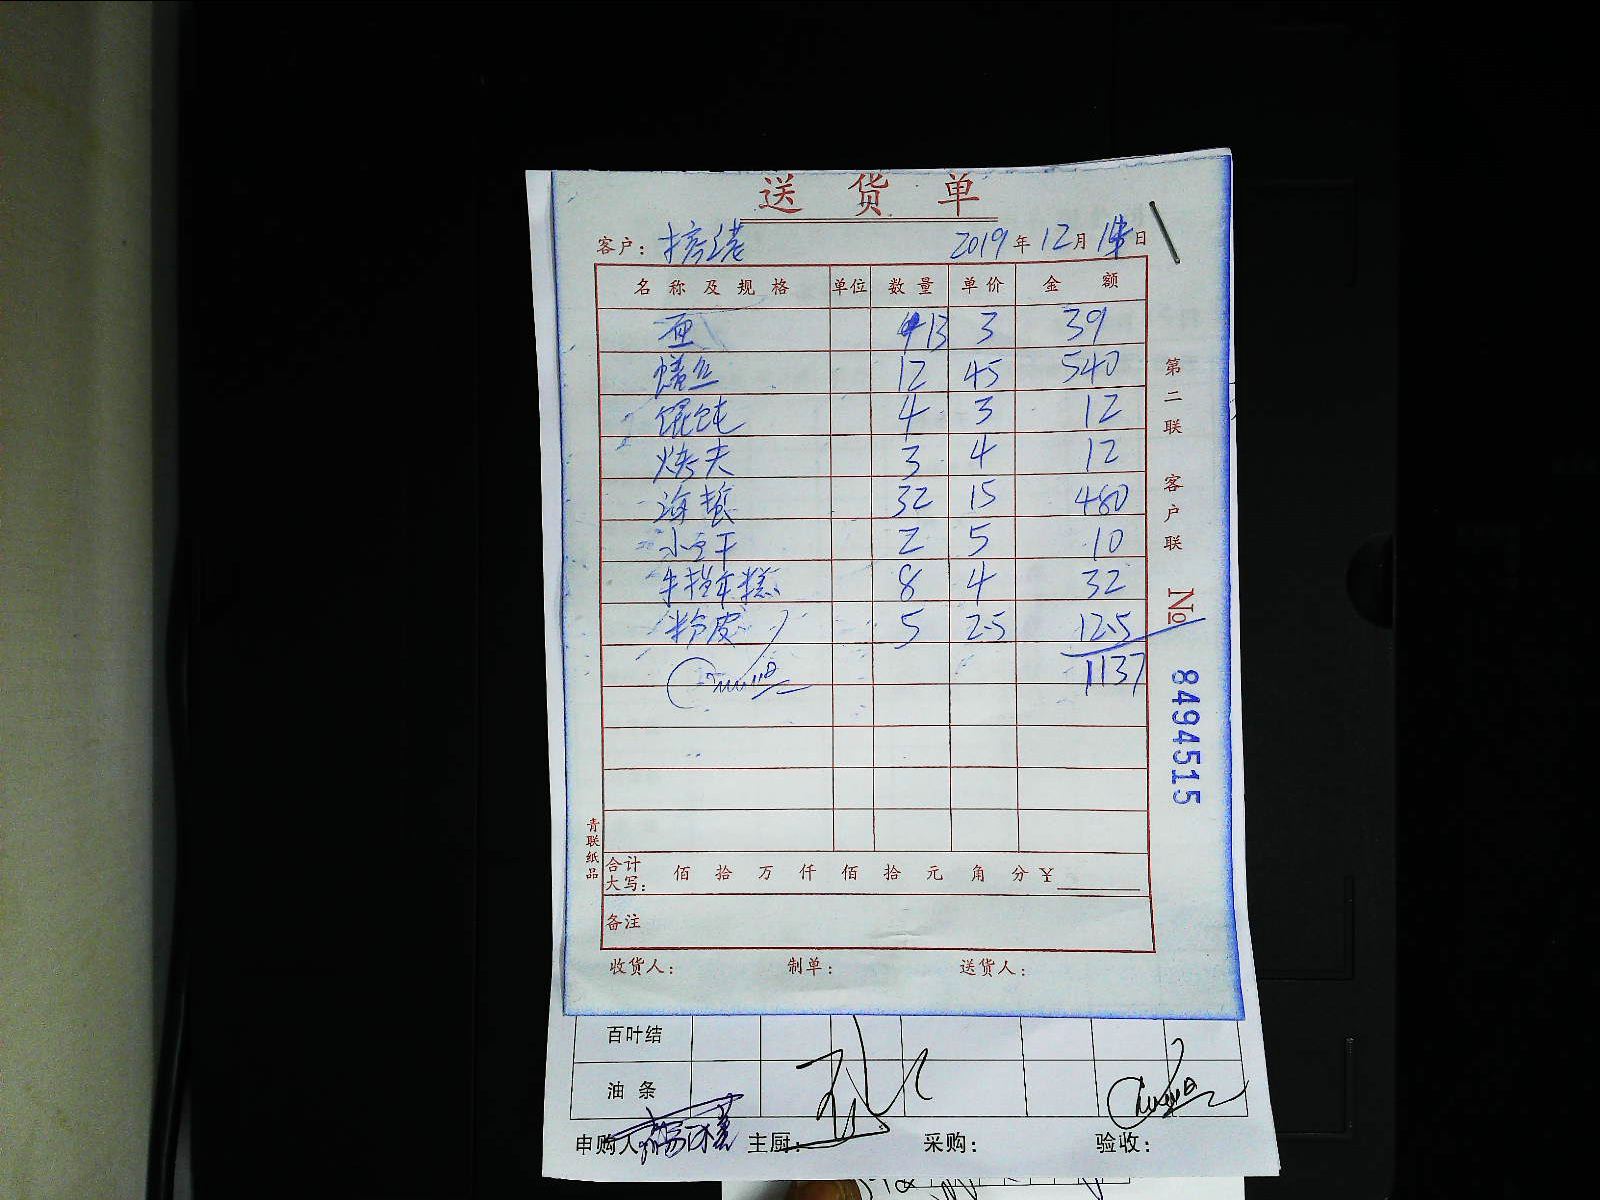 送 货 单
客户: 2019年12月14日
名 称 及 规 格 单位 数 量 单 价 金 额
面 13 3 39
鳝丝 12 45 540
馄饨 4 3 12
烤夫 3 4 12
海蜇 32 15 480
小豆干 2 5 10
年糕 8 4 32
粉皮 5 2.5 12.5
1137
合计大写: 佰 拾 万 仟 佰 拾 元 角 分 ¥
备注
收货人: 制单: 送货人:
青联纸品
第二联 客户联
No 8494515
百叶结
油 条
申购人 主厨: 采购: 验收: